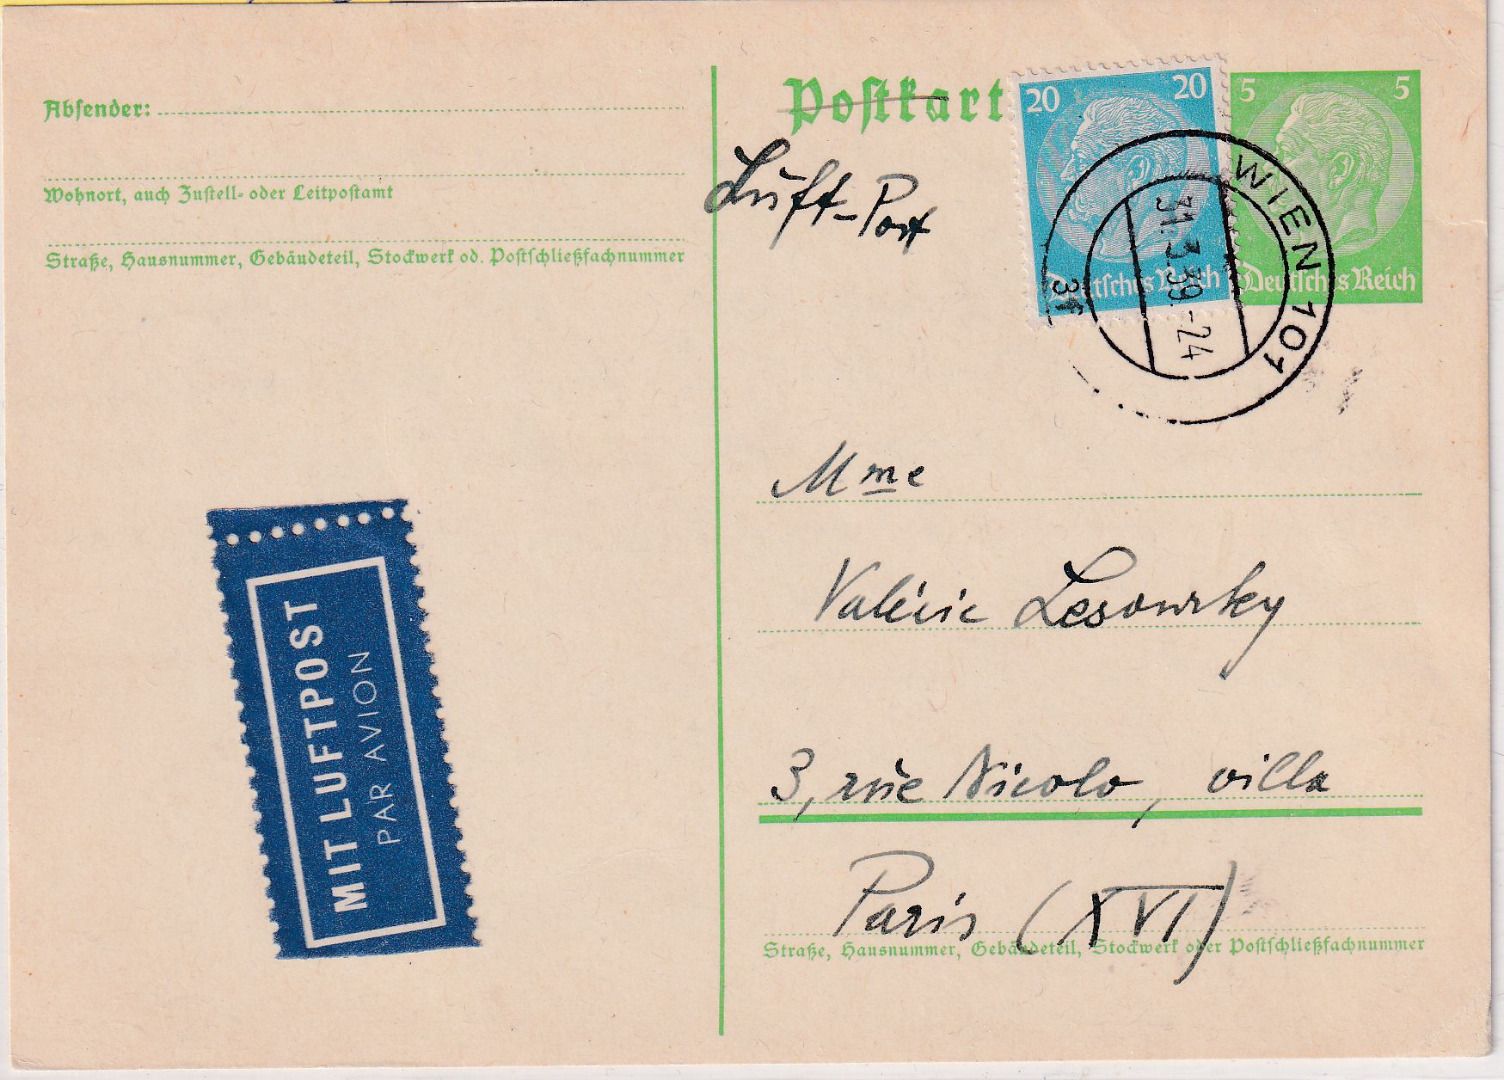 Absender:
Wohnort, auch Zustell- oder Leitpostamt
Straße, Hausnummer, Gebäudeteil, Stockwerk od. Postschließfachnummer
Postkart
Luft-Post
20 20
Deutsches Reich
5 5
Deutsches Reich
WIEN 101
31.3.39.-24
3f
MIT LUFTPOST
PAR AVION
Mme
Valérie Lesowsky
3, rue Nicolo, villa
Paris (XVI)
Straße, Hausnummer, Gebäudeteil, Stockwerk oder Postschließfachnummer